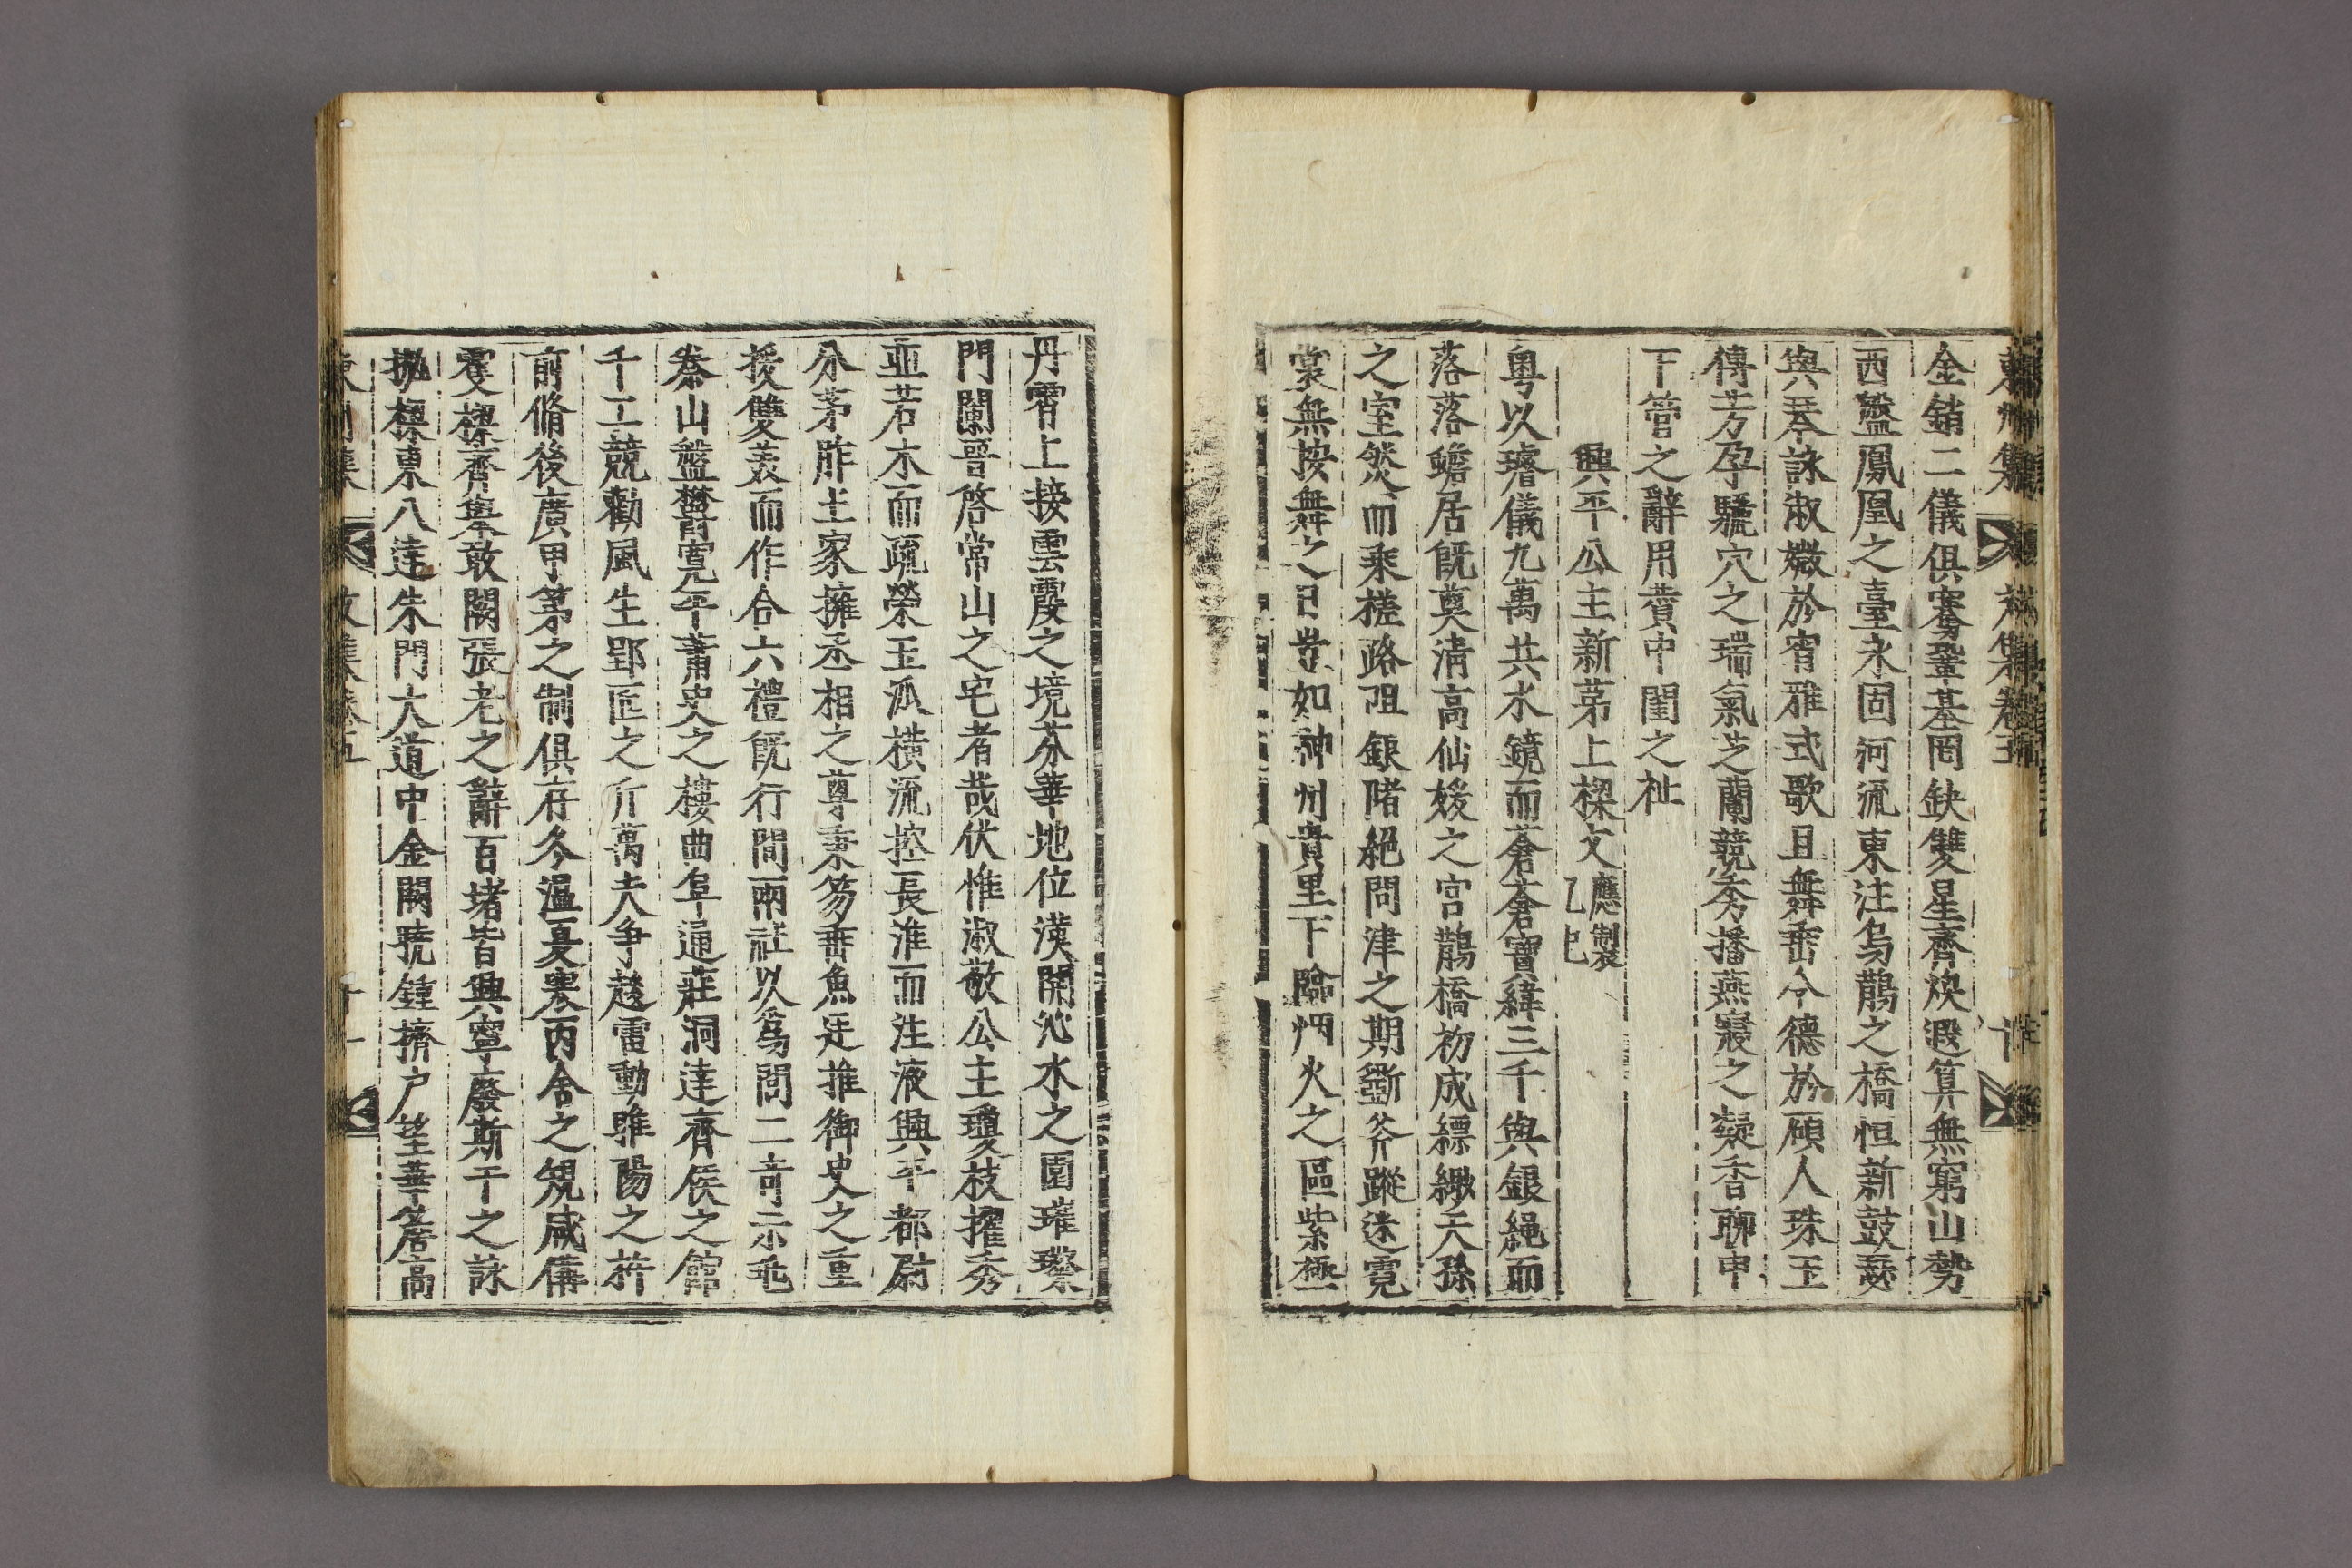 東州集 文集卷五 十
金銷二儀俱騫鞏基罔缺雙星齊煥遐算無窮山勢
西盤鳳凰之臺永固河流東注烏鵲之橋恒新鼓瑟
與琴詠淑媺於宵雅式歌且舞垂令德於碩人珠玉
傳芳孕驪穴之瑞氣芝蘭競秀播燕寢之凝香聊申
下管之辭用賁中閨之祉
興平公主新第上樑文應製乙巳
粤以璿儀九萬共水鏡而蒼蒼寶緯三千與銀繩而
落落蟾居旣奠淸高仙媛之宮鵲橋初成縹緲天孫
之室然而乘槎路阻銀陼絕問津之期斵斧蹤迷霓
裳無按舞之日豈如神州貴里下臨炳火之區紫極
丹霄上接雲霞之境芬華地位漢開沁水之園璀璨
門闌晉啓常山之宅者哉伏惟淑敬公主瓊枝擢秀
並若木而疏榮玉派橫流控長淮而注液興平都尉
分茅胙土家擁丞相之尊秉笏垂魚廷推御史之重
援雙羨而作合六禮旣行間兩社以爲問二奇示兆
秦山盤欝寬平蕭史之樓曲阜通莊洞達齊侯之館
千工競勸風生郢匠之斤萬夫爭趍雷動雎陽之杵
前脩後廣甲第之制俱存冬溫夏寒丙舍之規咸備
雯樑齊擧敢闕張老之辭百堵皆興寧廢斯干之詠
拋樑東八達朱門大道中金闕曉鍾擠户望華簷高
東州集 文集卷五 十一